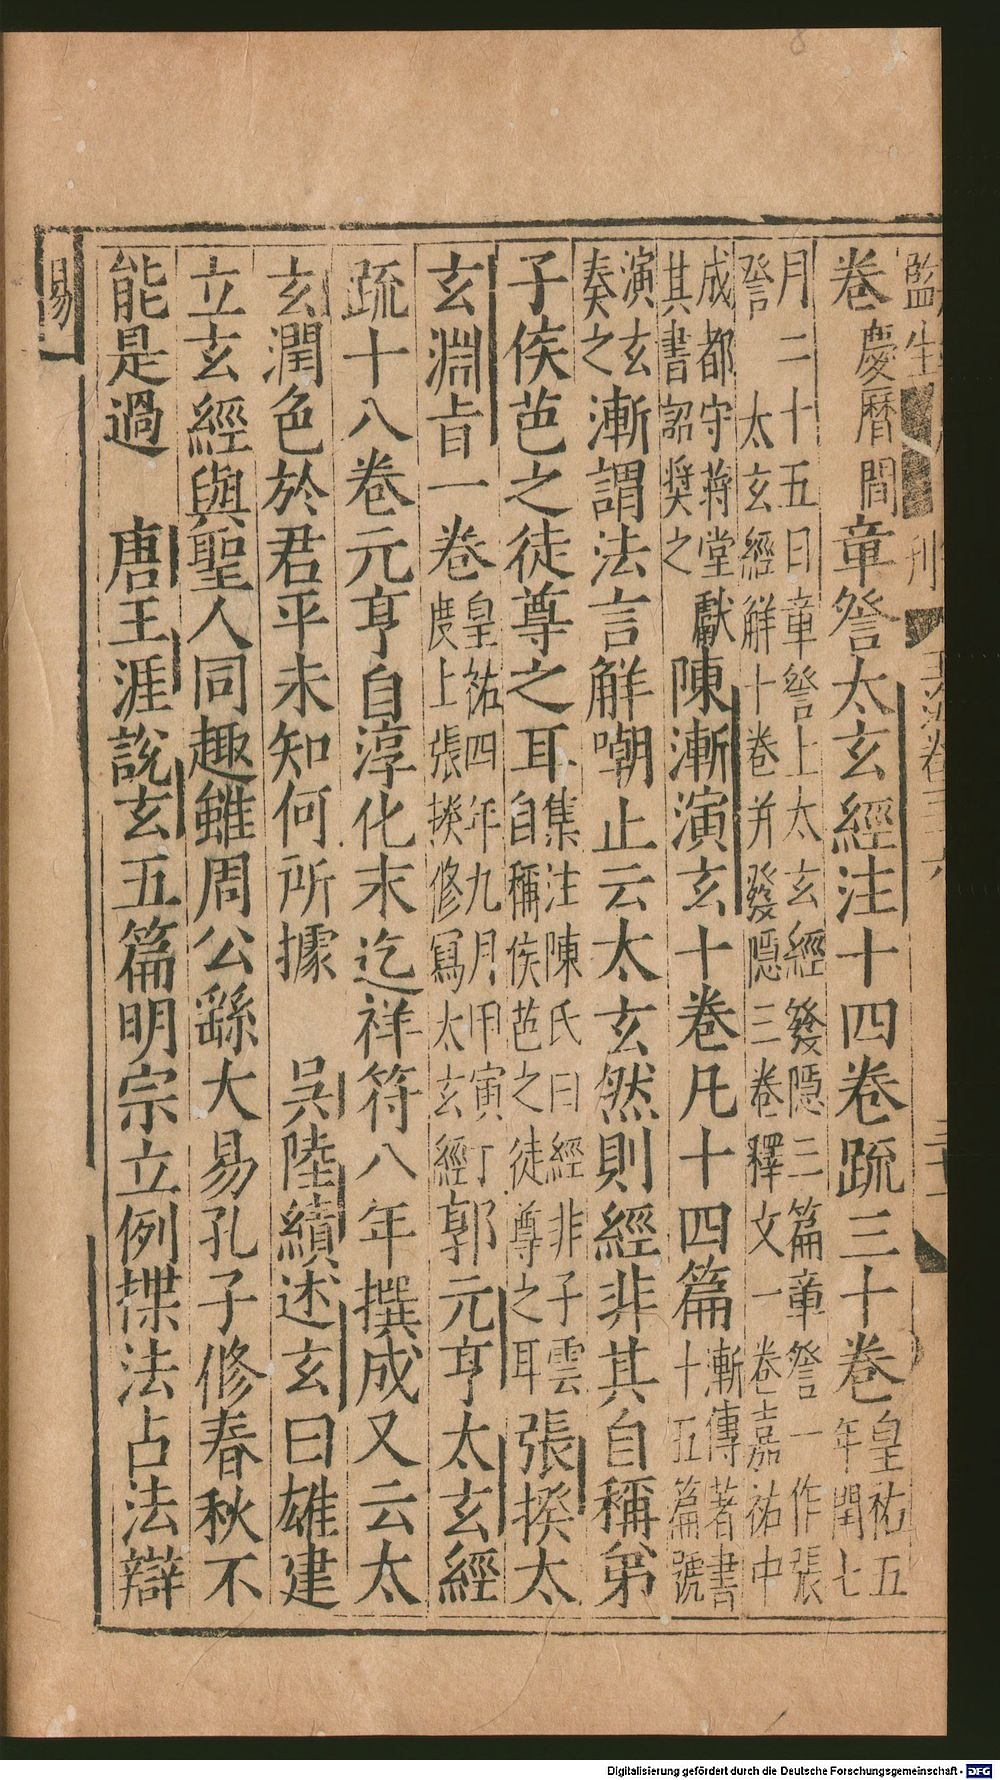 監生 刊 玉海卷三十六 三十一
卷慶曆間章詧太玄經注十四卷疏三十卷皇祐五年閏七
月二十五日章詧上太玄經發隱三篇章詧一作張詧 太玄經解十卷并發隱三卷釋文一卷嘉祐中
成都守蔣堂獻其書詔奬之陳漸演玄十卷凡十四篇漸傳著書十五篇號
演玄奏之漸謂法言解嘲止云太玄然則經非其自稱弟
子侯芭之徒尊之耳集注陳氏曰經非子雲自稱侯芭之徒尊之耳張揆太
玄淵旨一卷皇祐四年九月甲寅丁度上張揆修寫太玄經郭元亨太玄經
疏十八卷元亨自淳化末迄祥符八年撰成又云太
玄潤色於君平未知何所據 吳陸績述玄曰雄建
立玄經與聖人同趣雖周公繇大易孔子修春秋不
能是過 唐王涯說玄五篇明宗立例揲法占法辯
易
Digitalisierung gefördert durch die Deutsche Forschungsgemeinschaft - DFG
8